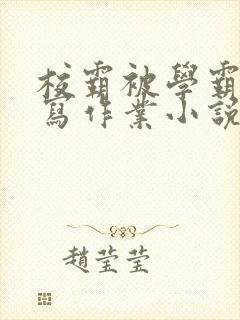 校霸被學霸
寫作業小說
趙瑩瑩